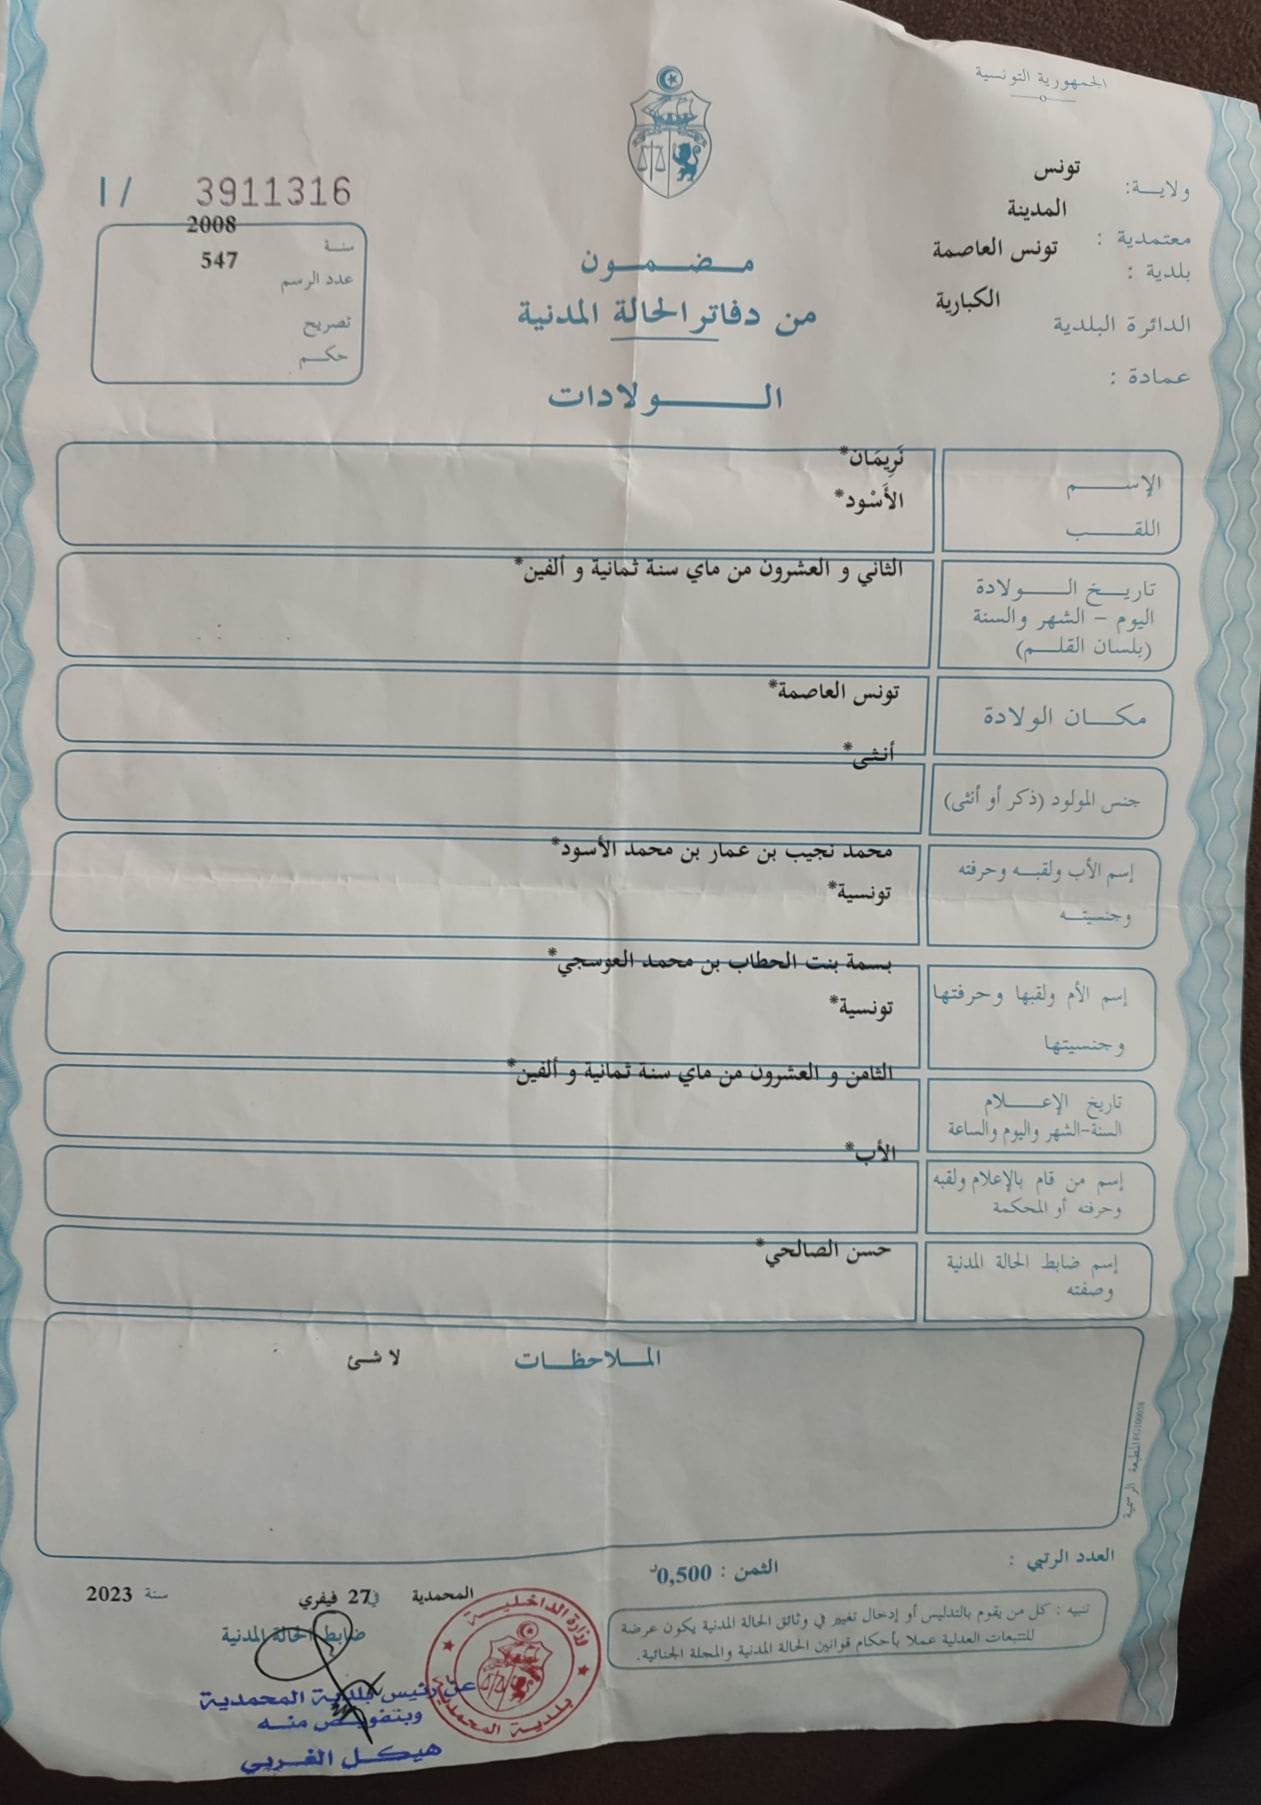 الجمهورية التونسية
ولايـــة: تونس
معتمدية : المدينة
بلدية : تونس العاصمة
الدائرة البلدية الكبارية
عمادة :
I / 3911316
سنـــة 2008
عدد الرسم 547
تصريح
حكـــم
مـــضـــمـــون
من دفاتر الحالة المدنية
الـــــولادات
الإســـــم نَرِيمَان*
اللقـــــب الأَسْود*
تاريـــخ الـــــولادة الثاني و العشرون من ماي سنة ثمانية و ألفين*
اليوم - الشهر والسنة
(بلسان القلـــم)
مكـــان الولادة تونس العاصمة*
جنس المولود (ذكر أو أنثى) أنثى*
إسم الأب ولقبـــه وحرفته محمد نجيب بن عمار بن محمد الأسود*
وجنسيتـــه تونسية*
إسم الأم ولقبها وحرفتها بسمة بنت الحطاب بن محمد العوسجي*
وجنسيتها تونسية*
تاريخ الإعـــلام الثامن و العشرون من ماي سنة ثمانية و ألفين*
السنة-الشهر واليوم والساعة
إسم من قام بالإعلام ولقبه الأب*
وحرفته أو المحكمة
إسم ضابط الحالة المدنية حسن الصالحي*
وصفته
الملاحظـــات لا شئ
المطبعة الرسمية
العدد الرتبي :
الثمن : 0,500د
تنبيه : كل من يقوم بالتدليس أو إدخال تغيير في وثائق الحالة المدنية يكون عرضة
للتتبعات العدلية عملا بأحكام قوانين الحالة المدنية والمجلة الجنائية.
المحمدية في 27 فيفري سنة 2023
ضابط الحالة المدنية
وزارة الداخليـــة
بلديـــة المحمدية
عن رئيس بلدية المحمدية
وبتفويـــض منـــه
هيكـــل الغـــربي